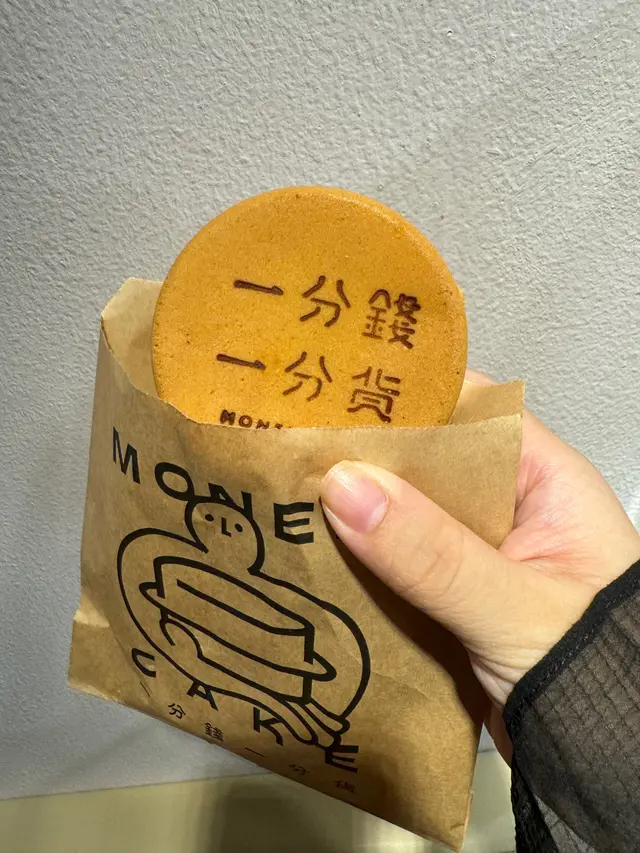 一分錢
一分貨
MONE
MONE
CAKE
一分錢一分貨